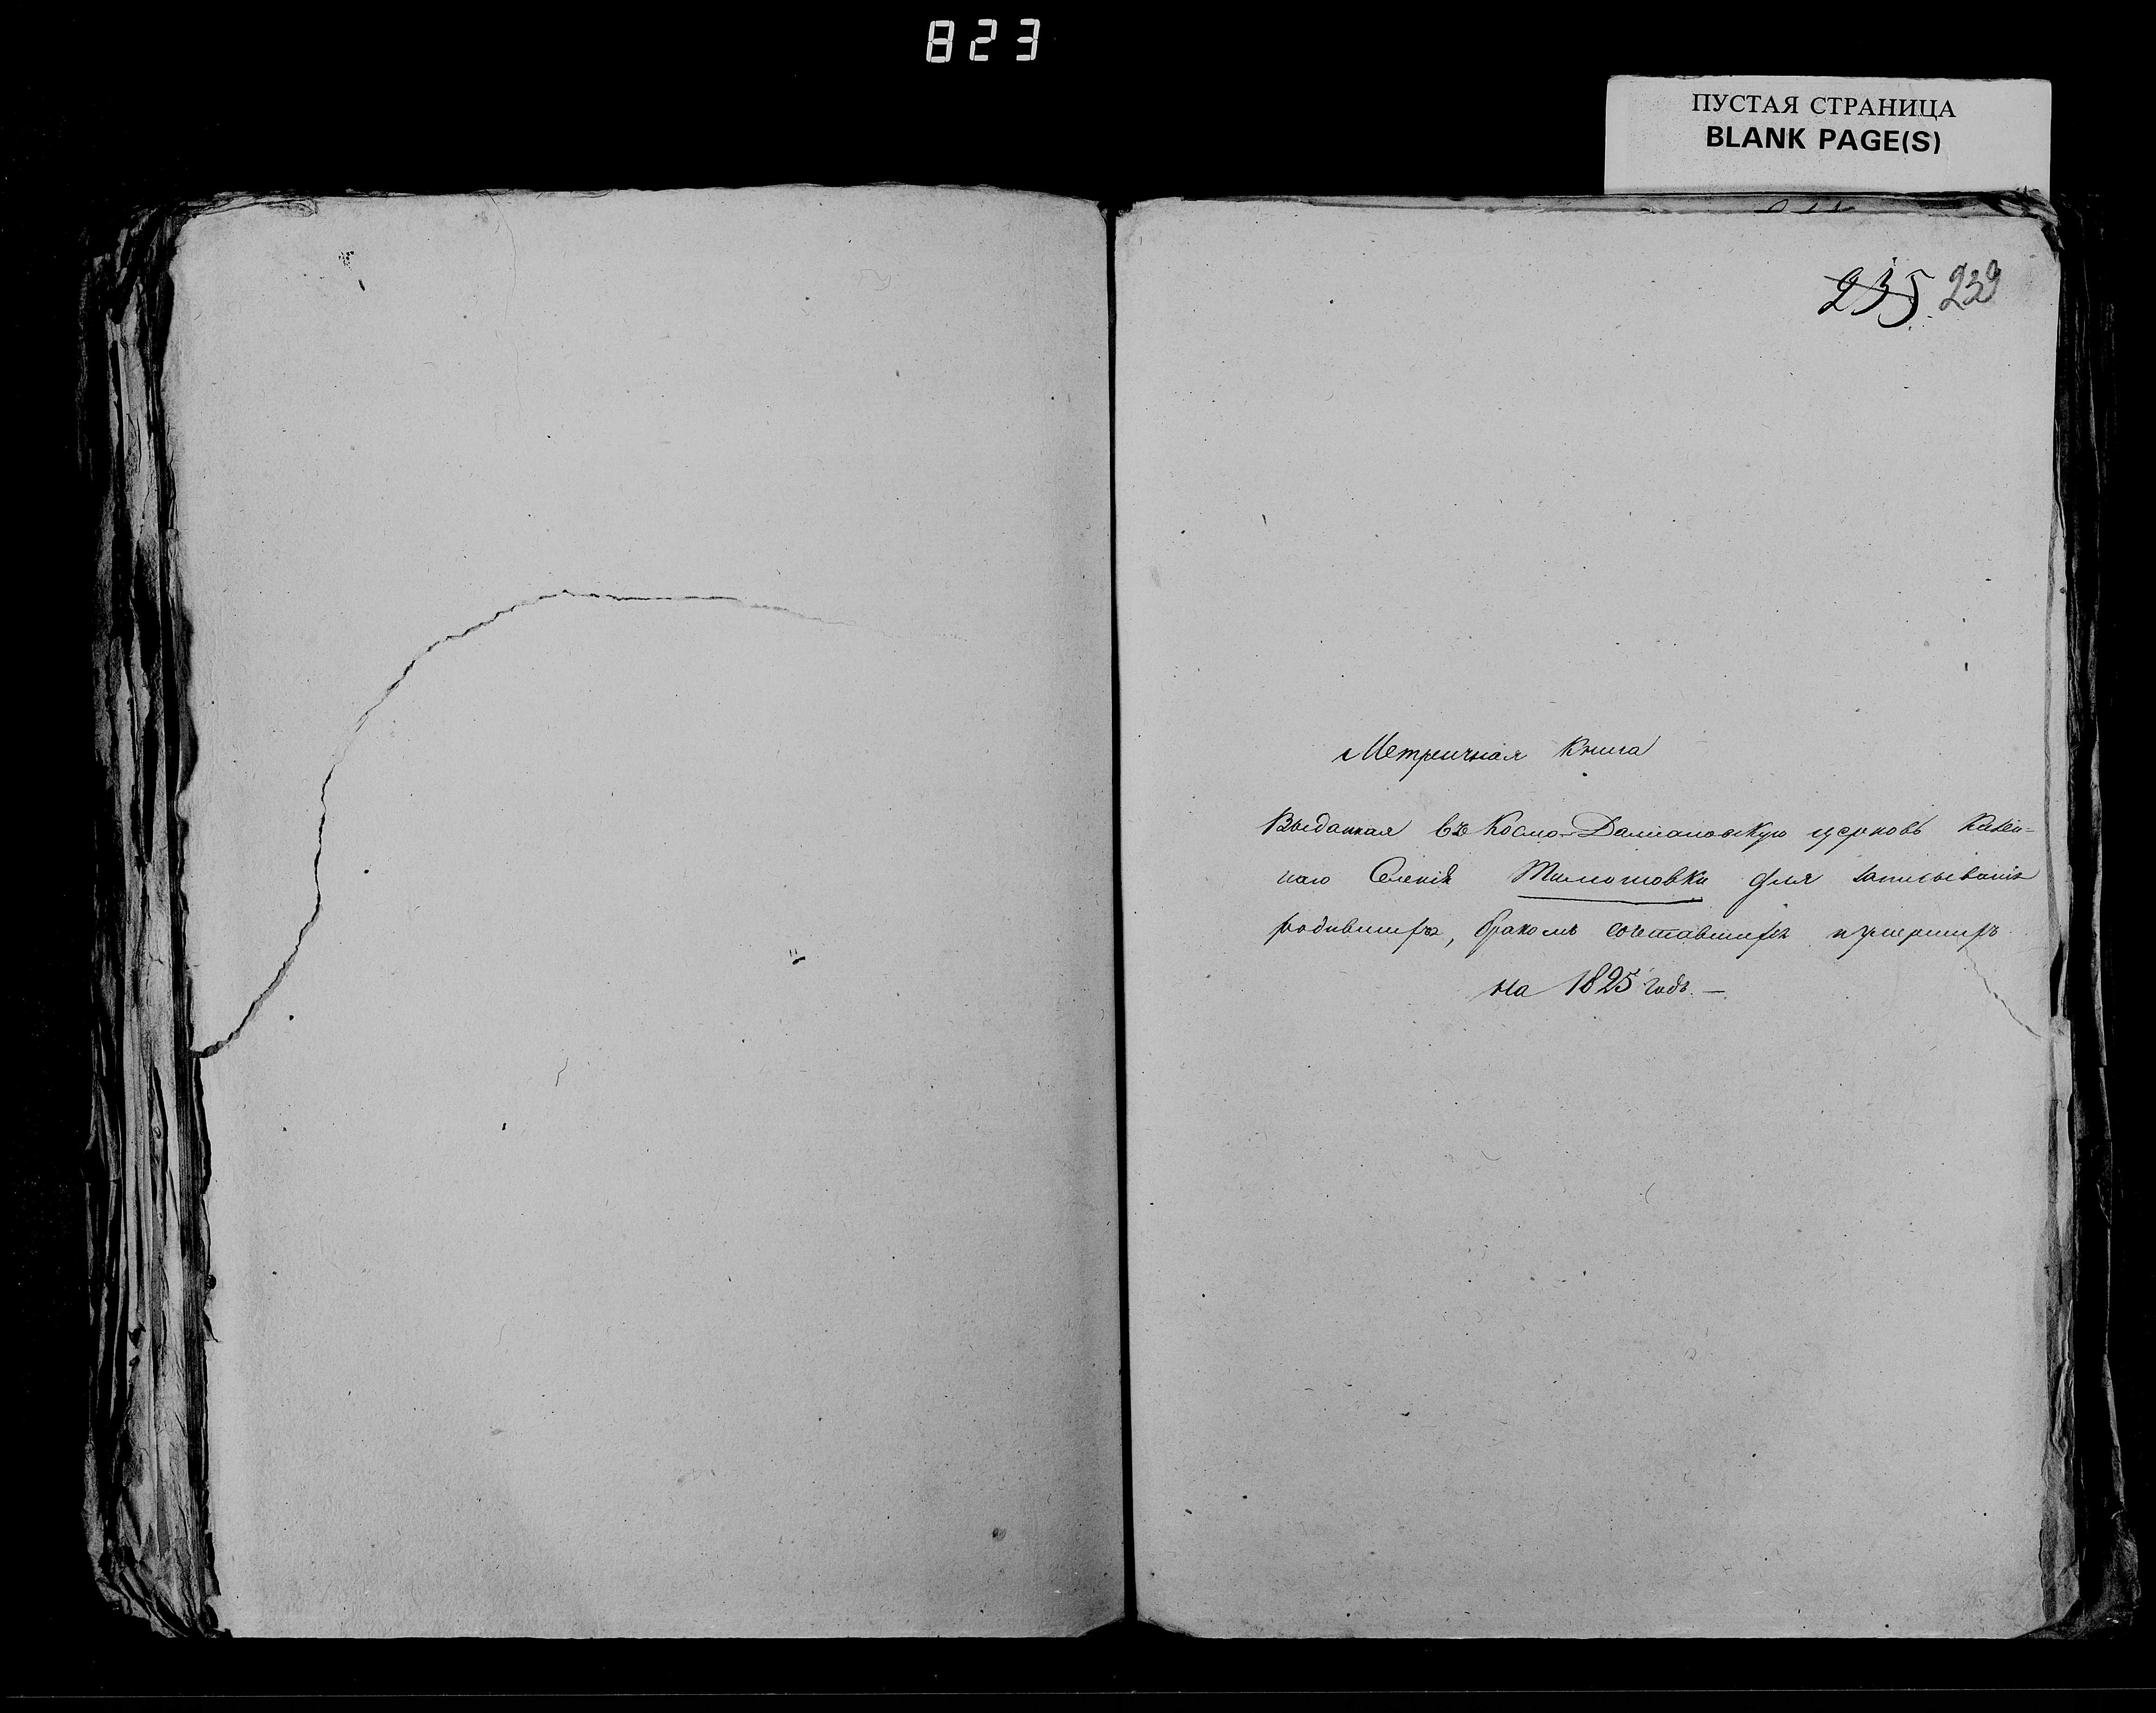 823
ПУСТАЯ СТРАНИЦА
BLANK PAGE(S)
235 239
Метричная Книга
Выданная въ Космо-Дамиановскую церковь Казен-
наго Селенія Тимошовки для записыванія
родившихъ, бракомъ сочетавшихъ и умершихъ
на 1825 годъ. —